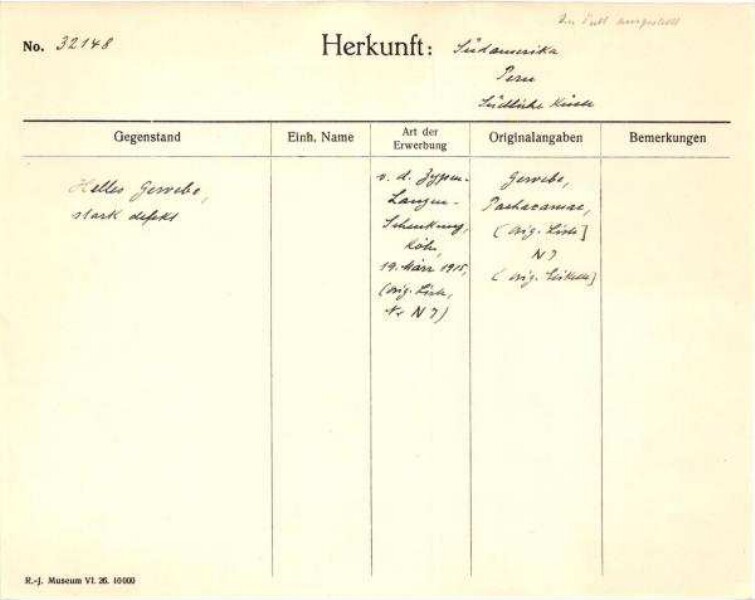 ausgestellt
No. 32148
Herkunft: Südamerika
Peru
Südliche Küste
Gegenstand
Einh. Name
Art der
Erwerbung
Originalangaben
Bemerkungen
Helles Gewebe,
stark defekt
v. d. Zypen-
Langen-
Schenkung,
Köln,
19. März 1915,
(orig. Liste,
Nr N 7)
Gewebe,
Pachacamac,
(orig. Liste]
N 7
(orig. Etikette]
R.-J. Museum VI. 26. 10000